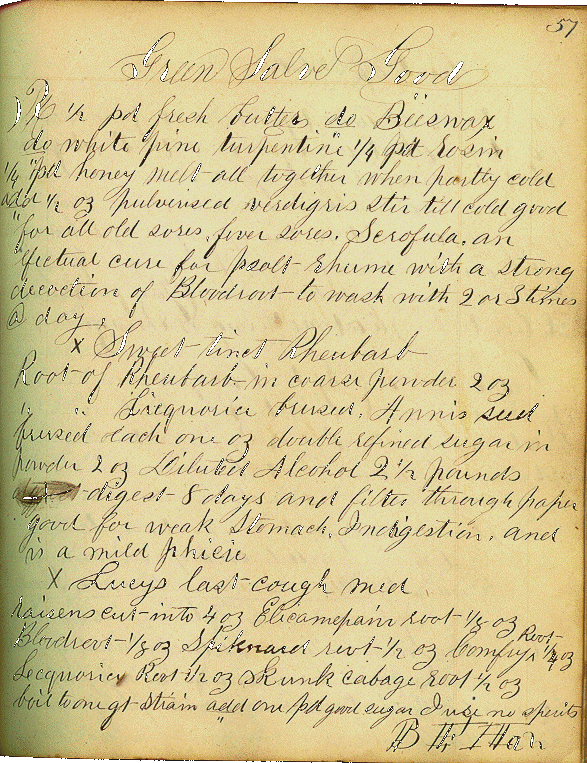 57
Green Salve Good
℞ 1/2 pd fresh butter do Beeswax
do white pine turpentine 1/4 pd Rosin
1/4 pd honey melt all together when partly cold
add 1/2 oz pulverised verdigris stir till cold good
for all old sores, fever sores. Scrofula. an
efectual cure for psalt Rhume with a strong
decoction of Bloodroot to wash with 2 or 3 times
a day.
X Sweet tinct Rheubarb
Root of Rheubarb in coarse powder 2 oz
" " Liequorice brused, Annis seed
brused each one oz double refined sugar in
powder 2 oz Diluted Alcohol 2 1/2 pounds
digest 8 days and filter through paper
good for weak Stomach, Indigestion, and
is a mild phicic
X Lucys last cough med
raisens cut into 4 oz Elicampain root 1/8 oz
Bloodroot 1/8 oz Spiknard root 1/2 oz Comfry Root 1/4 oz
Lecquorice Root 1/2 oz skunk cabage root 1/2 oz
boil to one qt strain add one pd good sugar I use no spirits
B